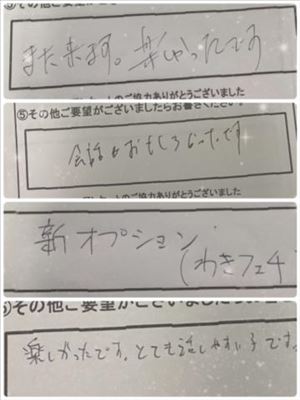 また来ます。楽しかったです
ご協力ありがとうございました
⑤その他ご要望がございましたらお書きください。
会話がおもしろかったです
ご協力ありがとうございました
新オプション
(わきフェチ
その他ご要望がございましたらお書きくだ
楽しかったです。とても話しやすい子です。